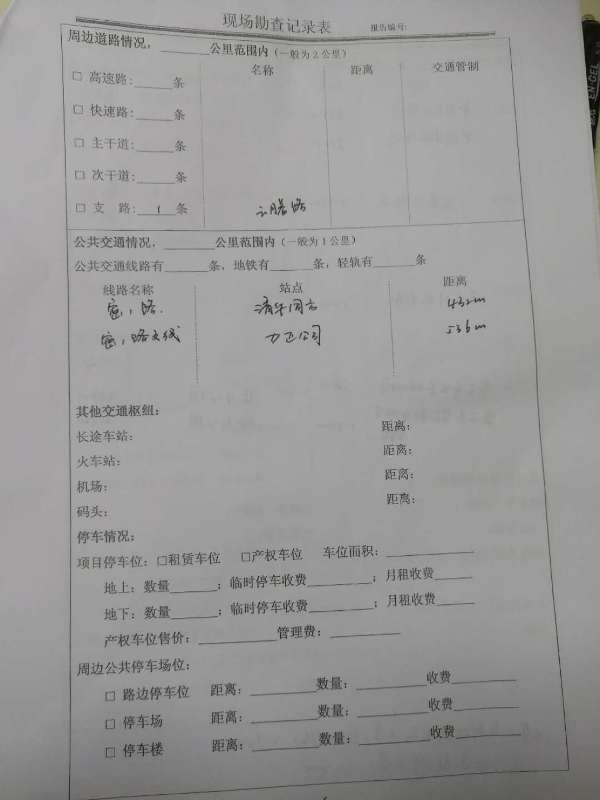 现场勘查记录表 报告编号:
周边道路情况，______公里范围内（一般为2公里）
名称 距离 交通管制
□ 高速路:_____条
□ 快速路:_____条
□ 主干道:_____条
□ 次干道:_____条
□ 支 路:__1__条
公共交通情况，______公里范围内（一般为1公里）
公共交通线路有_____条，地铁有_____条，轻轨有_____条
线路名称 站点 距离
密1路 432m
密1路支线 公司 536m
其他交通枢纽:
长途车站: 距离:
火车站: 距离:
机场: 距离:
码头: 距离:
停车情况:
项目停车位: □租赁车位 □产权车位 车位面积:__________
地上: 数量_____; 临时停车收费_______; 月租收费_____
地下: 数量_____; 临时停车收费_______; 月租收费_____
产权车位售价:_________管理费:________
周边公共停车场位:
□ 路边停车位 距离:________数量:________收费_______
□ 停车场 距离:________数量:________收费_______
□ 停车楼 距离:________数量:________收费_______